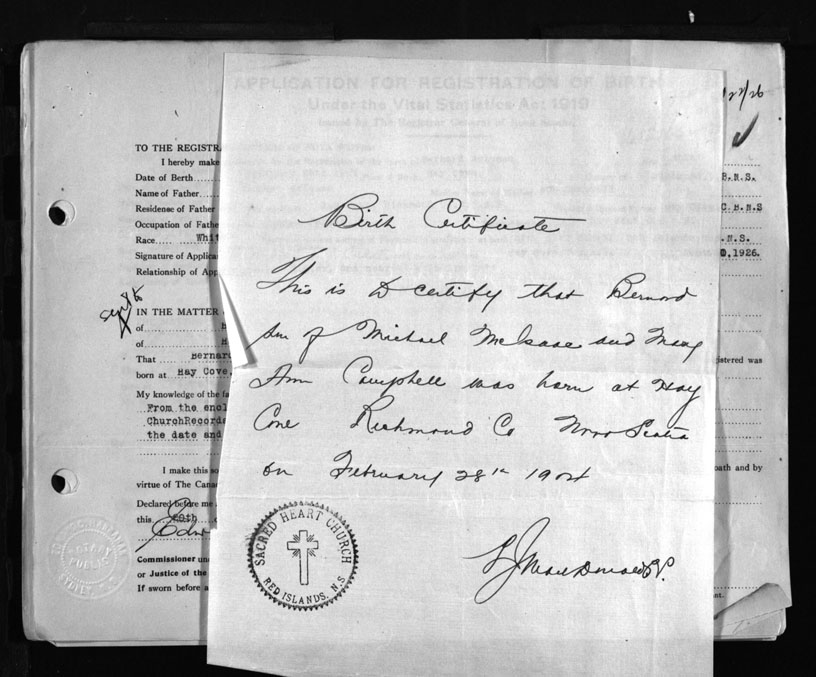 APPLICATION FOR REGISTRATION OF BIRTH
Under the Vital Statistics Act 1919
TO THE REGISTR
I hereby make
Date of Birth
Name of Father
Residence of Father
Occupation of Fathe
Race..... Whit
Signature of Applica
Relationship of App
B.N.S.
C.B.N.S
.N.S.
,1926.
Sept 8
IN THE MATTER
of
of
That Bernard
born at Hay Cove,
My knowledge of the fa
From the encl
ChurchRecords
the date and
istered was
I make this so
virtue of The Cana
oath and by
Declared before me
this
Commissioner un
or Justice of the
If sworn before a
nt.
Birth Certificate
This is to certify that Bernard
son of Michael McIsaac and Mary
Ann Campbell was born at Hay
Cove Richmond Co Nova Scotia
on February 28th 1904
SACRED HEART CHURCH
RED ISLANDS, N.S
NOTARY
PUBLIC
SYDNEY